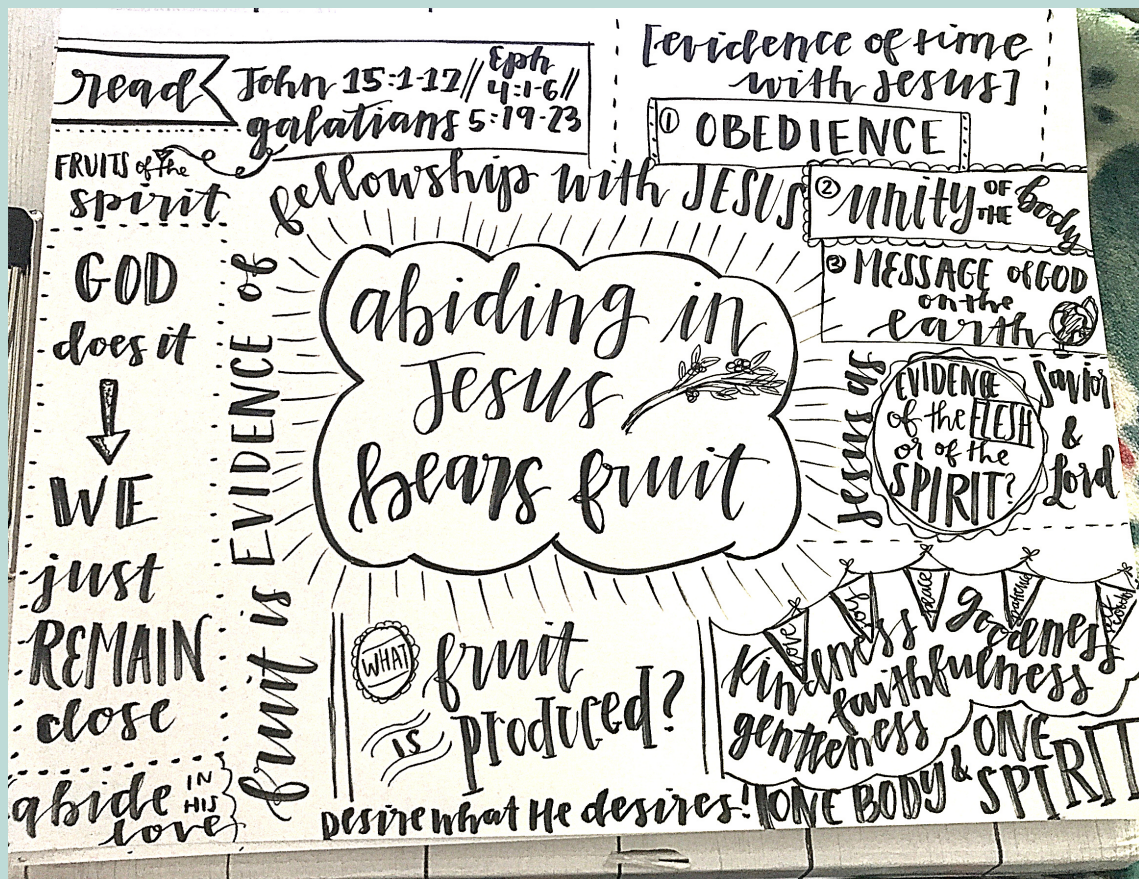 read
John 15:1-12// Eph 4:1-6//
galatians 5:19-23
[evidence of time
with Jesus]
① OBEDIENCE
② unity OF THE body
③ MESSAGE of GOD
on the
earth
FRUITS of the
spirit
GOD
does it
WE
just
REMAIN
close
abide IN HIS
love
fruit is EVIDENCE of fellowship with JESUS
abiding in
Jesus
bears fruit
Jesus as
EVIDENCE
of the FLESH
or of the
SPIRIT?
Savior
&
Lord
WHAT fruit
IS produced?
love
joy
peace
patience
kindness goodness
faithfulness
gentleness
Desire what He desires!
ONE BODY & ONE
SPIRIT